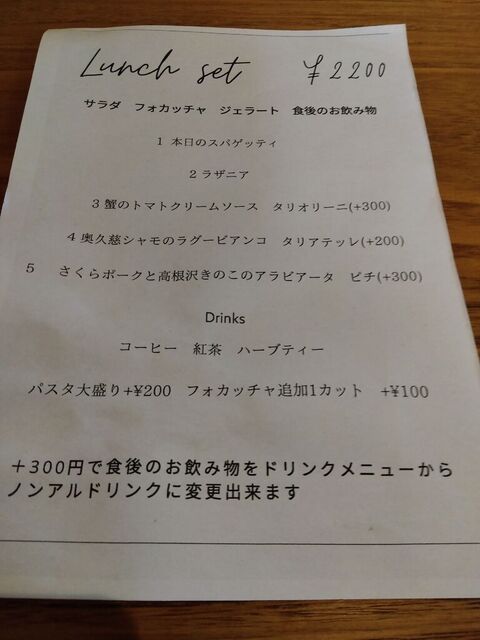 Lunch set ¥2200
サラダ フォカッチャ ジェラート 食後のお飲み物
1 本日のスパゲッティ
2 ラザニア
3 蟹のトマトクリームソース タリオリーニ(+300)
4 奥久慈シャモのラグービアンコ タリアテッレ(+200)
5 さくらポークと高根沢きのこのアラビアータ ピチ(+300)
Drinks
コーヒー 紅茶 ハーブティー
パスタ大盛り+¥200 フォカッチャ追加1カット +¥100
＋300円で食後のお飲み物をドリンクメニューから
ノンアルドリンクに変更出来ます